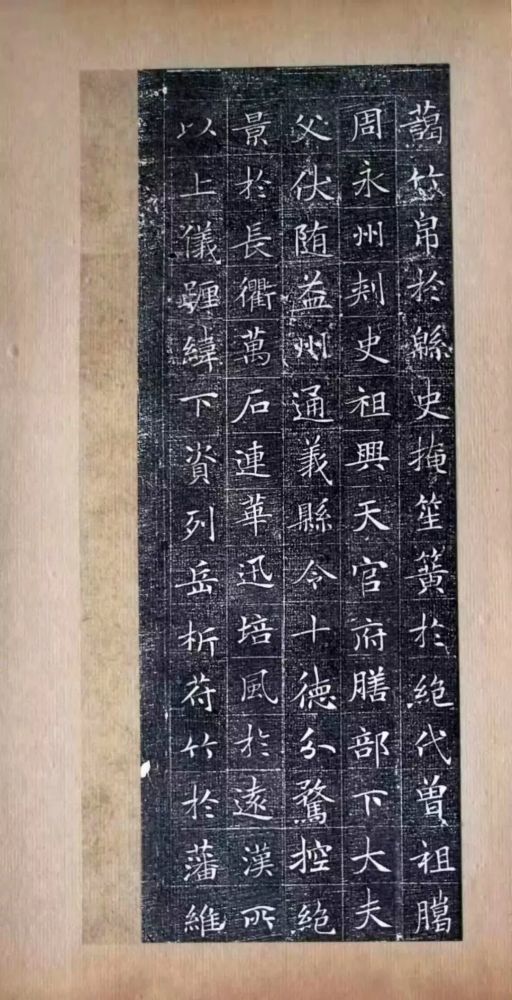 藹竹帛於緜史掩笙簧於絶代曾祖
周永州刾史祖興天官府膳部下大夫
父伏随益州通義縣令十德分騖控絶
景於長衢萬石連華迅培風於遠漢所
以上儀躔緯下資列岳析苻竹於藩維